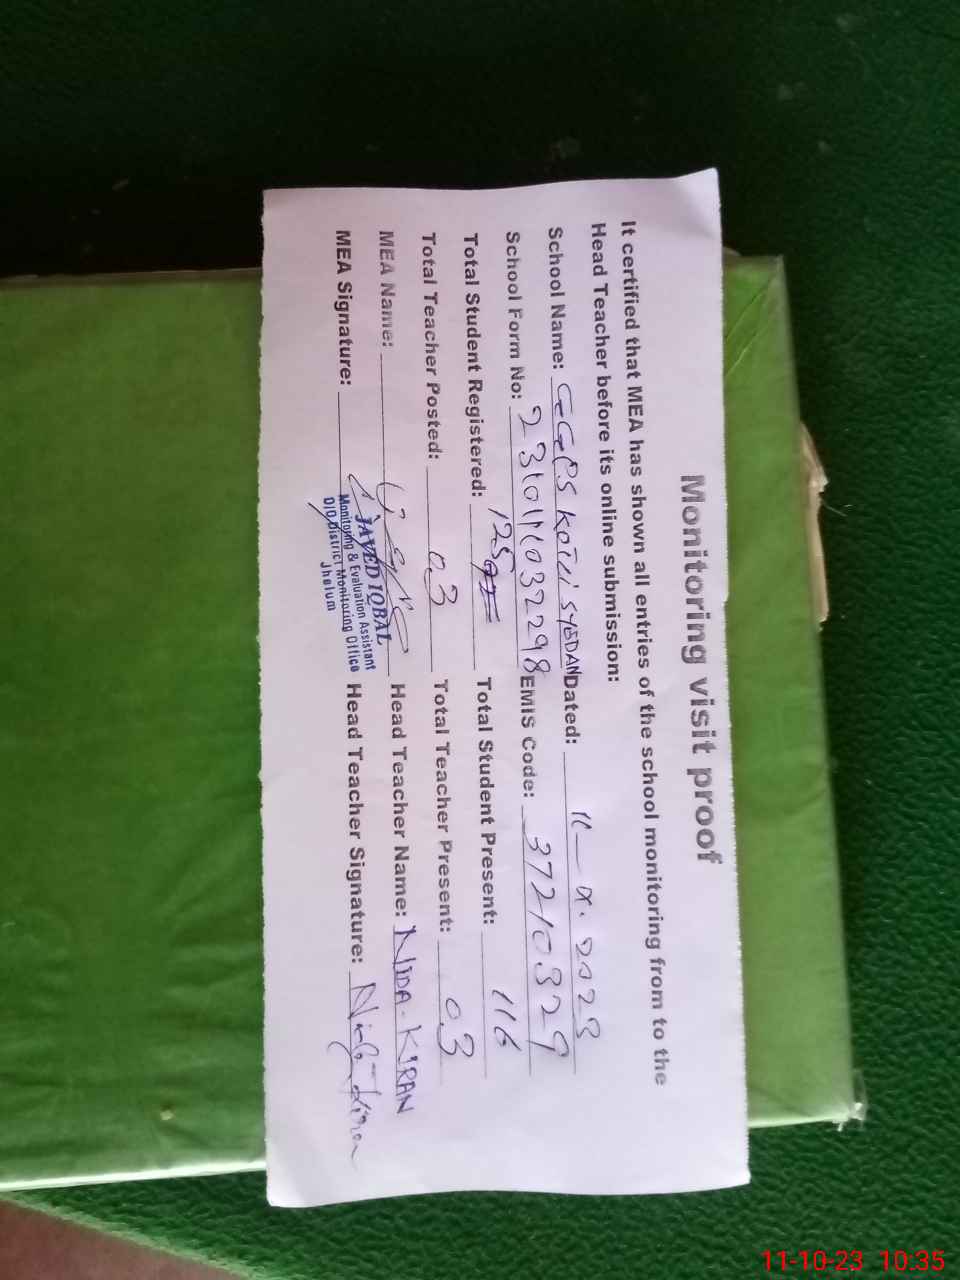 Monitoring visit proof
It certified that MEA has shown all entries of the school monitoring from to the
Head Teacher before its online submission:
School Name: GGPS Kotli SYEDAN Dated: 11-X-2023
School Form No: EMIS Code: 37210329
Total Student Registered: 125 Total Student Present: 116
Total Teacher Posted: 03 Total Teacher Present: 03
MEA Name: Head Teacher Name: NIDA-KIRAN
MEA Signature: Head Teacher Signature: Nida Kiran
JAVED IQBAL
Monitoring & Evaluation Assistant
O/O District Monitoring Office
Jhelum
11-10-23 10:35